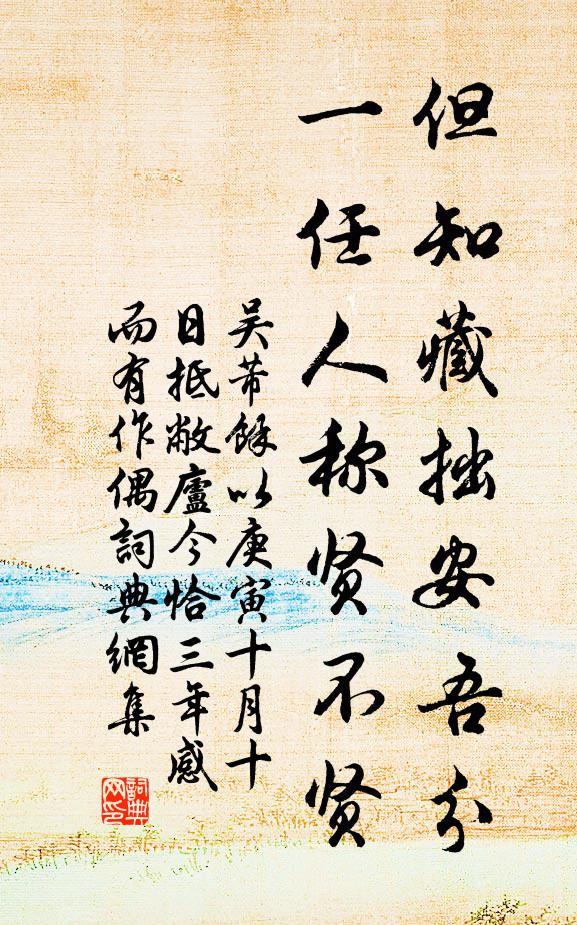 但知藏拙安吾分
一任人称贤不贤
吴芾馀以庚寅十月十
日抵敝廬今恰三年感
而有作偶詞典網集
詞典
网印